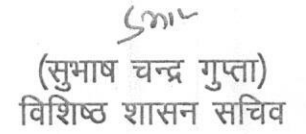 (सुभाष चन्द्र गुप्ता)
विशिष्ठ शासन सचिव